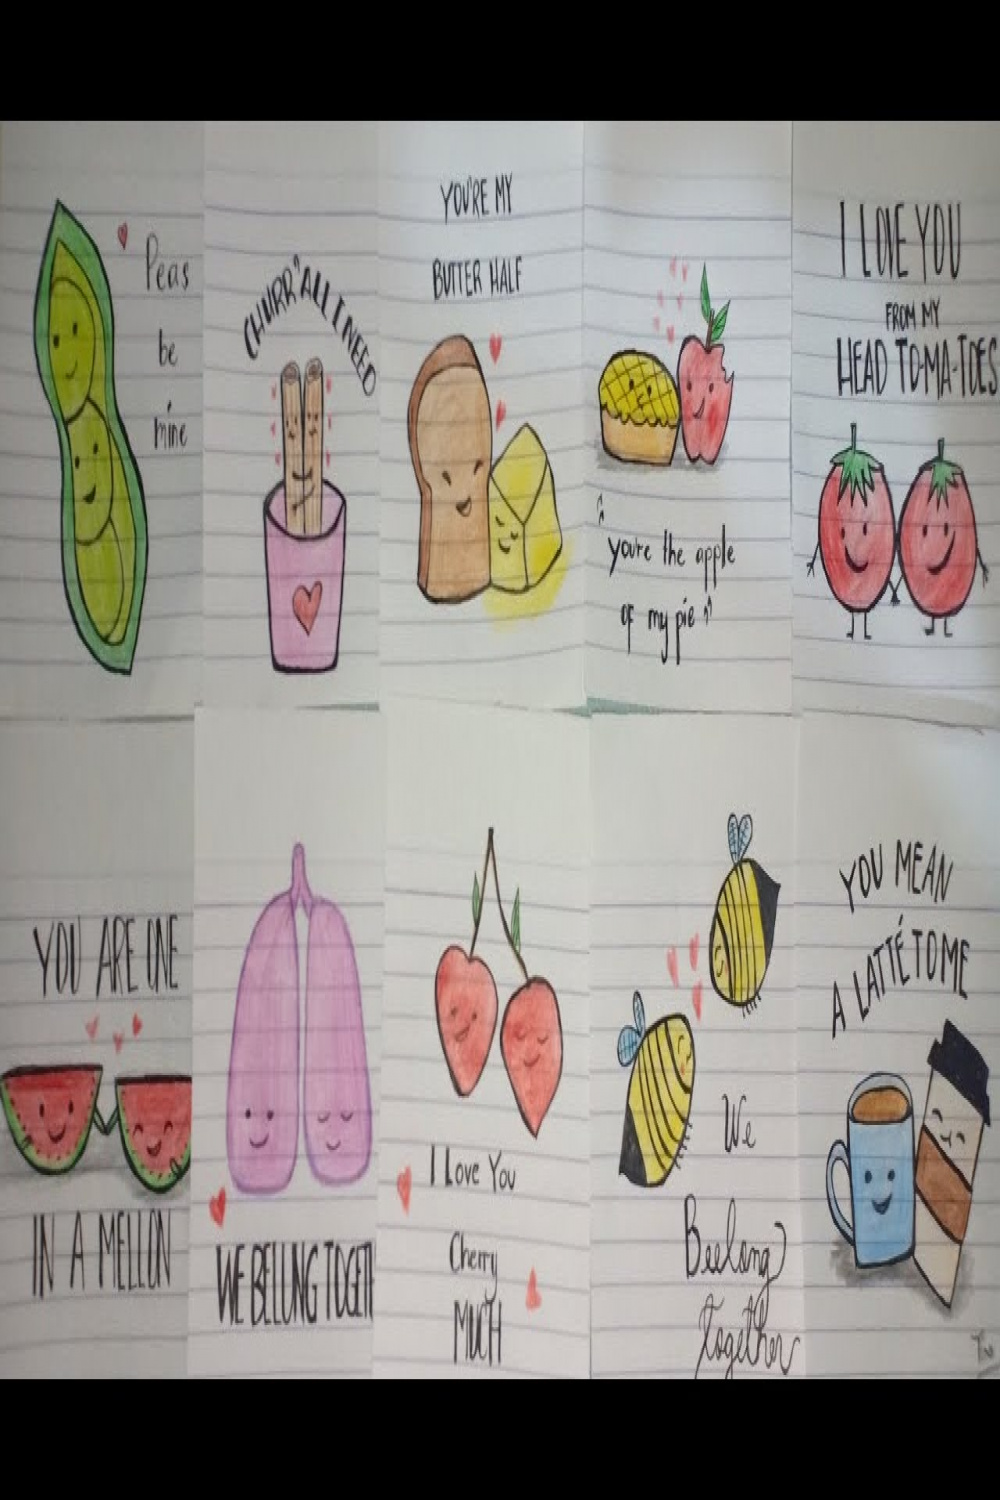 Peas
be
mine
CHURR"ALL I NEED
YOU'RE MY
BUTTER HALF
"you're the apple
of my pie"
I LOVE YOU
FROM MY
HEAD TO-MA-TOES
YOU ARE ONE
IN A MELLON
WE BELUNG TOGETH
I Love You
Cherry
MUCH
We
Beelong
together
YOU MEAN
A LATTÉ TO ME